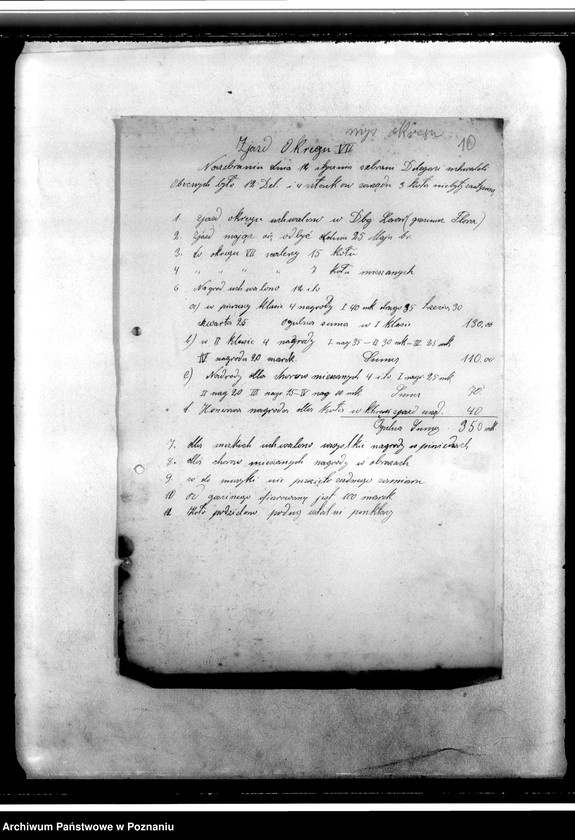 okręgu
10
Zjazd Okręgu VII
dnia 12 stycznia zebrani Delegaci uchwalili
Obecnych było 12 Del. i 4 członków zarządu 3 koła
1. zjazd okręgu uchwalono w Dbg
2. Zjazd mający się odbyć dnia 25 Maja br.
3. do okręgu VII należy 15 kołu
4 " " " " 7 kołu mieszanych
6 Nagrod uchwalono 12 i to
a) w pierwszy klasie 4 nagrody I 40 mk drugo 35 trzecia 30
czwarta 25 ogulna suma w I klasie 130,00
b) w II klasie 4 nagrody I nag 35 – II 30 mk – III 25 mk
IV nagroda 20 marek. Suma 110.00
c) Nadrody dla chorow mieszanych 4 i to I nagr 25 mk
II nag 20 III nagr 15 – IV nag 10 mk Suma 70
d. Honorowa nagroda dla koła w 40
Ogulna Suma 350 mk
7. dla męskich uchwalono wszystkie nagrody w pieniedzach
8. dla chorow mieszanych nagrody w obrazach
9 co do muzyki nie
10 Od ofiarowany jest 100 marek
11 Koło podług
Archiwum Państwowe w Poznaniu